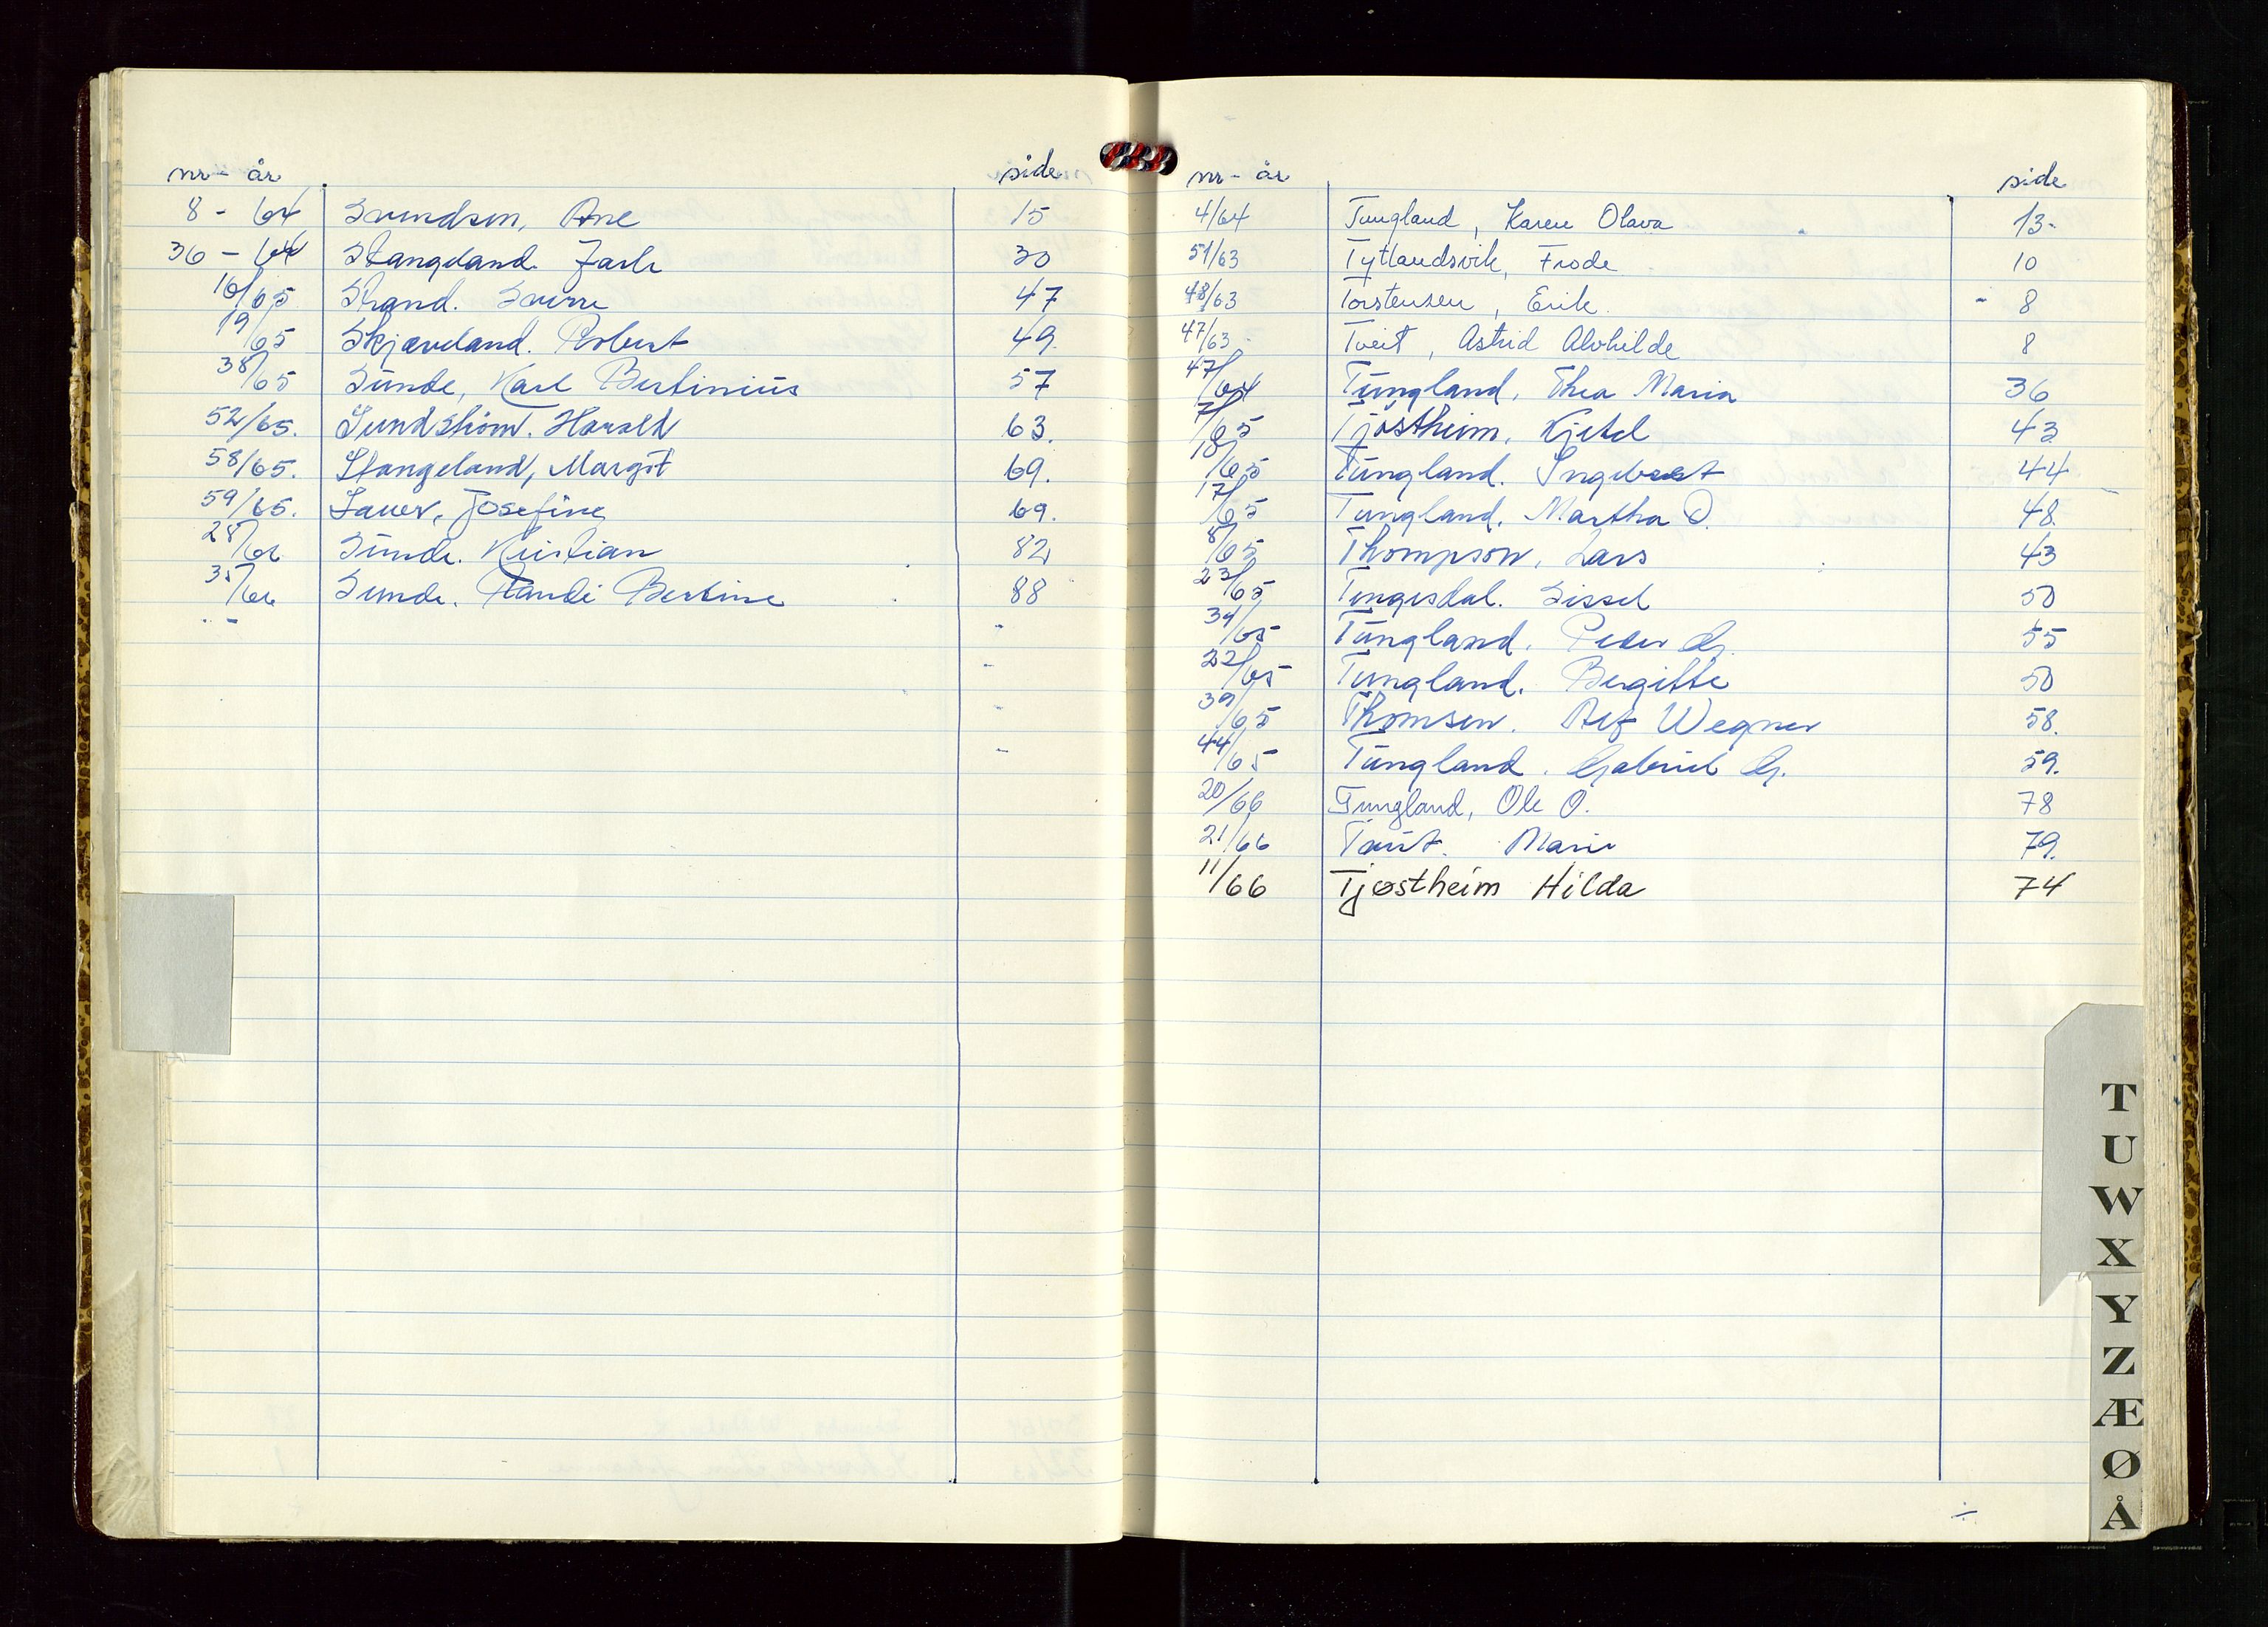 nr - år side
8 - 64 Svendsen, Ane 15
36 - 64 Stangeland Jarle 30
16/65 Strand. Sverre 47
19/65 Skjæveland. Robert 49.
38/65 Sunde, Karl Bertinius 57
52/65. Sundstrøm. Harald 63.
58/65. Stangeland, Margit 69.
59/65. Sauer, Josefine 69.
28/66 Sunde. Kristian 82
35/66 Sunde. Randi Bertine 88
nr - år side
4/64 Tungland, Karen Olava 13-
51/63 Tytlandsvik, Frode 10
48/63 Torstensen, Erik. 8
47/63 Tveit, Astrid Alvhilde 8
47/64 Tungland. Thea Maria 36
7/65 Tjøstheim. Kjetel 43
18/65 Tungland. Ingebret 44
17/65 Tungland. Martha O. 48.
8/65 Thompson, Lars 43
23/65 Tengesdal. Sissel 50
34/65 Tungland. Peder G. 55
22/65 Tungland. Bergitte 50
39/65 Thomsen. Alf Wegner 58.
44/65 Tungland. Gabriel G. 59.
20/66 Tungland, Ole O. 78
21/66 Marie 79.
11/66 Tjøstheim Hilda 74
T
U
W
X
Y
Z
Æ
Ø
Å